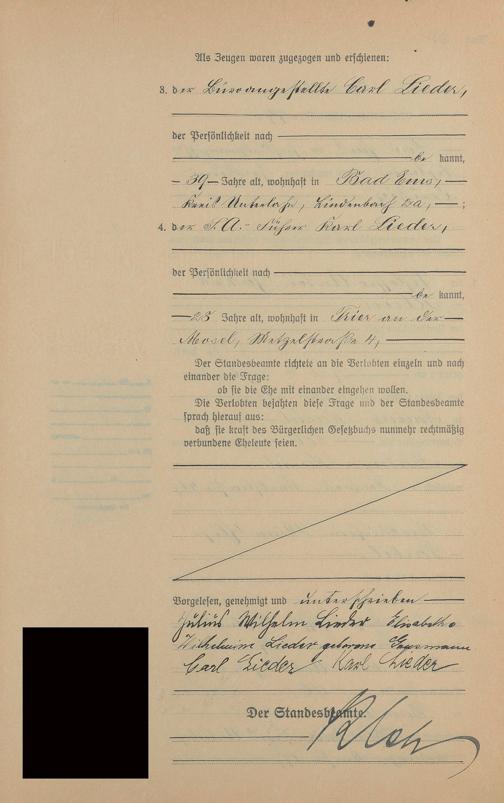 Als Zeugen waren zugezogen und erschienen:
3. der Büroangestellte Carl Lieder,
der Persönlichkeit nach
be kannt,
39 Jahre alt, wohnhaft in Bad Ems,
Kreis Unterlahn, Lindenbach 2a, ;
4. der S.A.-Führer Karl Lieder,
der Persönlichkeit nach
be kannt,
25 Jahre alt, wohnhaft in Trier an der
Mosel, Metzelstraße 4,
Der Standesbeamte richtete an die Verlobten einzeln und nach
einander die Frage:
ob sie die Ehe mit einander eingehen wollen.
Die Verlobten bejahten diese Frage und der Standesbeamte
sprach hierauf aus:
daß sie kraft des Bürgerlichen Gesetzbuchs nunmehr rechtmäßig
verbundene Eheleute seien.
Vorgelesen, genehmigt und unterschrieben
Julius Wilhelm Lieder Elisabeth
Wilhelmine Lieder geborene
Carl Lieder Karl Lieder
Der Standesbeamte.